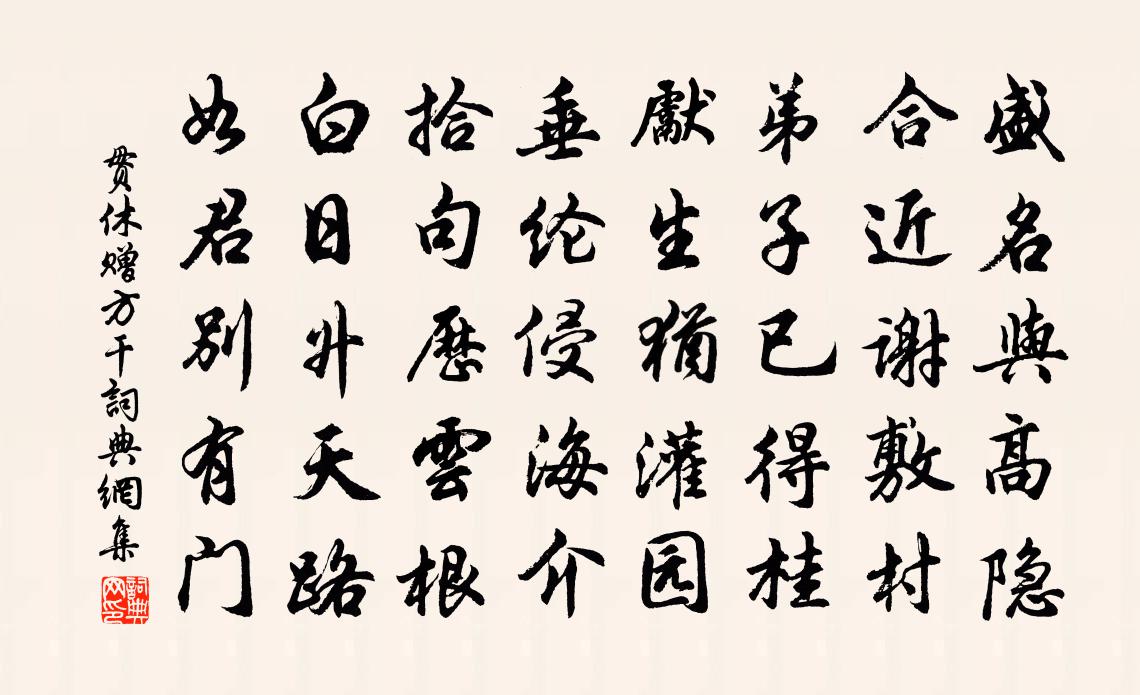 盛名與高隐
合近谢敷村
弟子已得桂
獻生猶灌园
垂纶侵海介
拾句歷雲根
白日升天路
如君别有门
贯休赠方干詞典網集
詞典网印